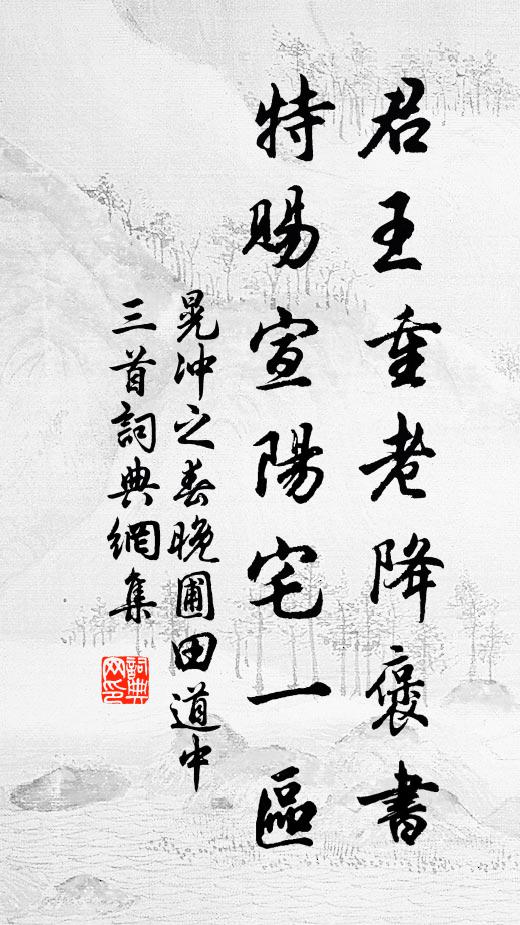 君王重老降褒書
特賜宣陽宅一區
晁沖之春晚圃田道中
三首詞典網集
詞典網印